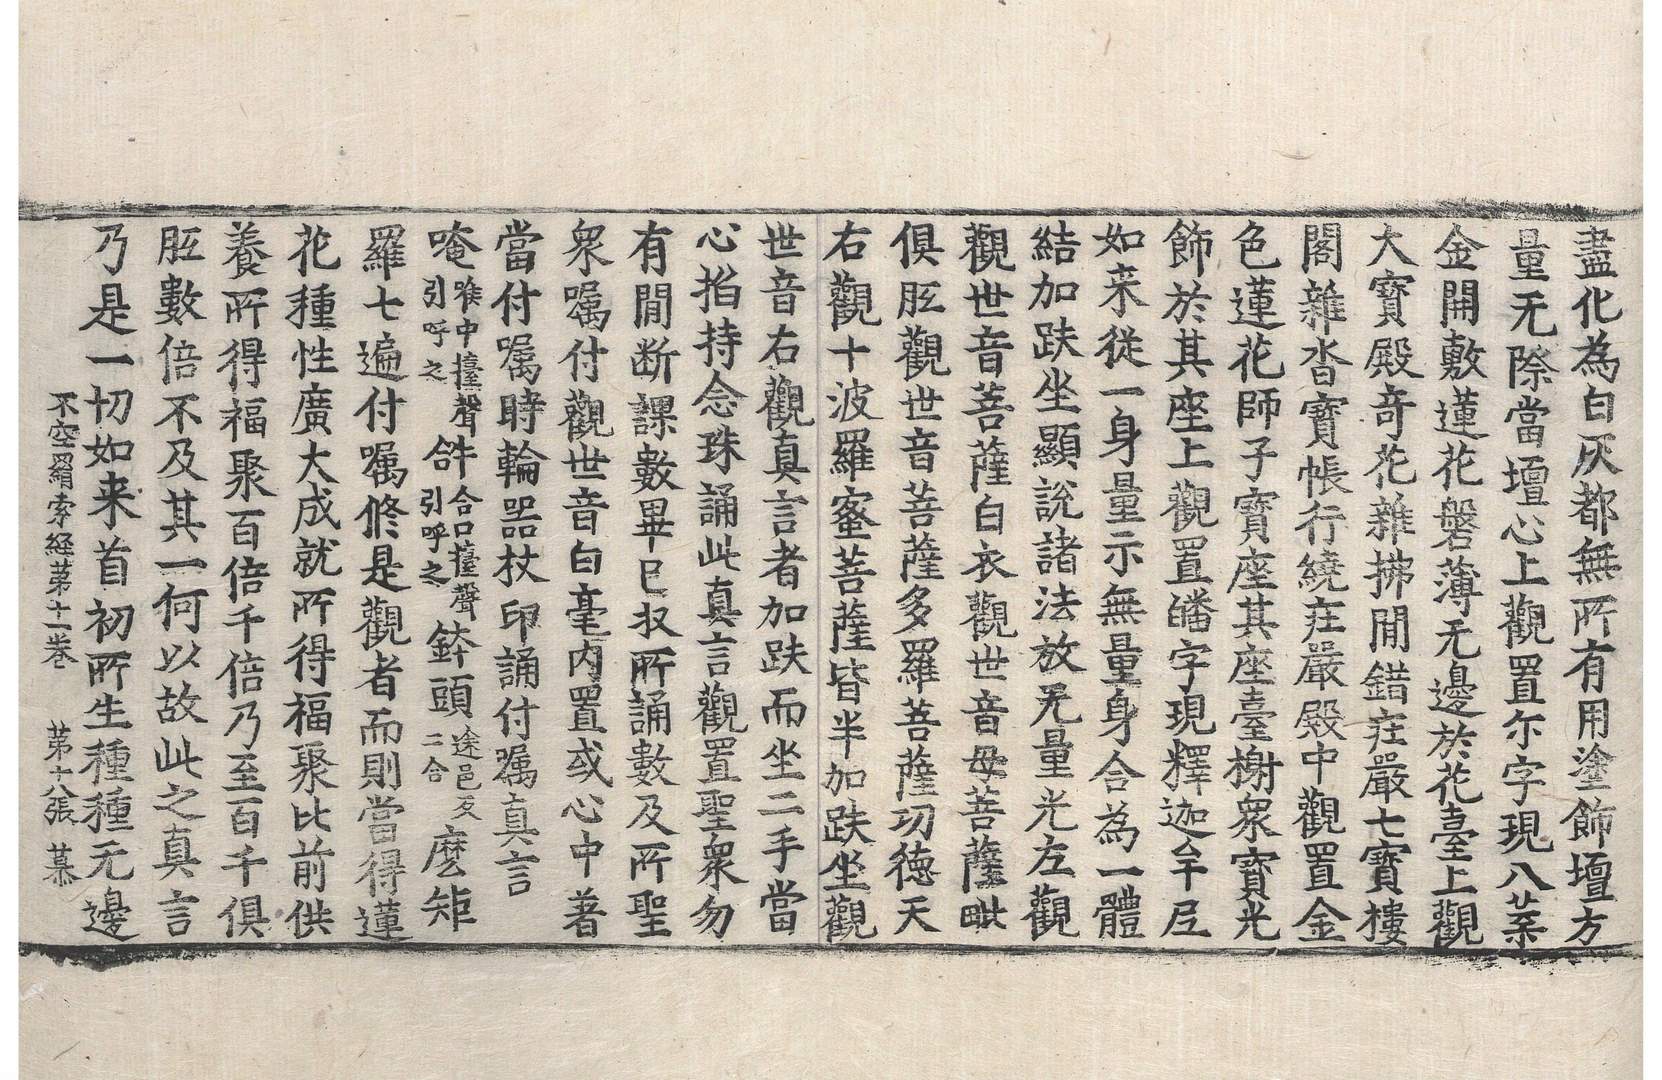 盡化為白灰都無所有用塗飾壇方
量无際當壇心上觀置尓字現八葉
金開敷蓮花磐薄无邊於花臺上觀
大寶殿奇花雜拂閒錯莊嚴七寶樓
閣雜沓寶帳行繞莊嚴殿中觀置金
色蓮花師子寶座其座臺榭衆寶光
飾於其座上觀置皤字現釋迦牟尼
如来從一身量示無量身合為一體
結加趺坐顯說諸法放无量光左觀
觀世音菩薩白衣觀世音母菩薩毗
俱胝觀世音菩薩多羅菩薩功德天
右觀十波羅蜜菩薩皆半加趺坐觀
世音右觀真言者加趺而坐二手當
心掐持念珠誦此真言觀置聖衆勿
有閒断課數畢已収所誦數及所聖
衆囑付觀世音白毫内置或心中著
當付囑時輪器杖印誦付囑真言
唵喉中擡聲引呼之𤙖合口擡聲引呼之鉢頭途邑反二合麽矩
羅七遍付囑修是觀者而則當得蓮
花種性廣大成就所得福聚比前供
養所得福聚百倍千倍乃至百千俱
胝數倍不及其一何以故此之真言
乃是一切如来首初所生種種无邊
不空羂索経苐十一巻 苐十八張 慕